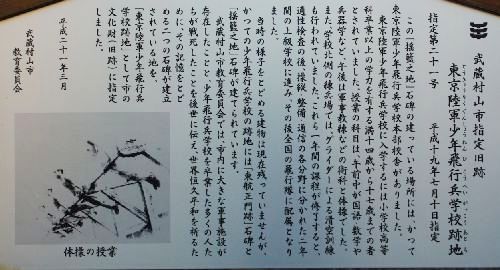 武蔵村山市指定旧跡
とうきょうりくぐんしょうねんひこうへいがっこうあとち
東京陸軍少年飛行兵学校跡地
指定第二十一号　平成十九年七月十日指定
この「揺籃之地」石碑の建っている場所には、かつて
東京陸軍少年飛行兵学校本部校舎がありました。
東京陸軍少年飛行兵学校に入学するには小学校高等
科卒業以上の学力を有する満十四歳から十七歳までの者
とされていました。授業の科目は、午前中が国語・数学や
兵器学など、午後は軍事教練などの術科と体操でした。
また、学校北側の練兵場では、グライダーによる滑空訓練
も行われていました。これら一年間の課程が修了すると、
適性検査の後、操縦、整備、通信の各分野に分かれた二年
間の上級学校に進み、その後全国の飛行隊に配属となり
ました。
当時の様子をとどめる建物は現在残っていませんが、
かつての少年飛行兵学校の跡地には「東航正門跡」石碑と
「揺籃之地」石碑が建てられています。
武蔵村山市教育委員会では、市内に大きな軍事施設が
存在したことと、少年飛行兵学校を卒業した多くの人た
ちが戦死したことを後世に伝え、世界恒久平和を祈るた
めに、その記憶をとど
める二つの石碑が建立
されている地を、
「東京陸軍少年飛行兵
学校跡地」として市の
文化財（旧跡）に指定
しました。
平成二十一年三月
武蔵村山市
教育委員会
体操の授業